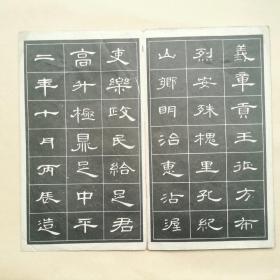 義韋貢王征方布
烈安殊槐里孔紀
山鄉明治惠沾渥
吏樂政民給足君
高升極鼎足中平
二年十月丙辰造